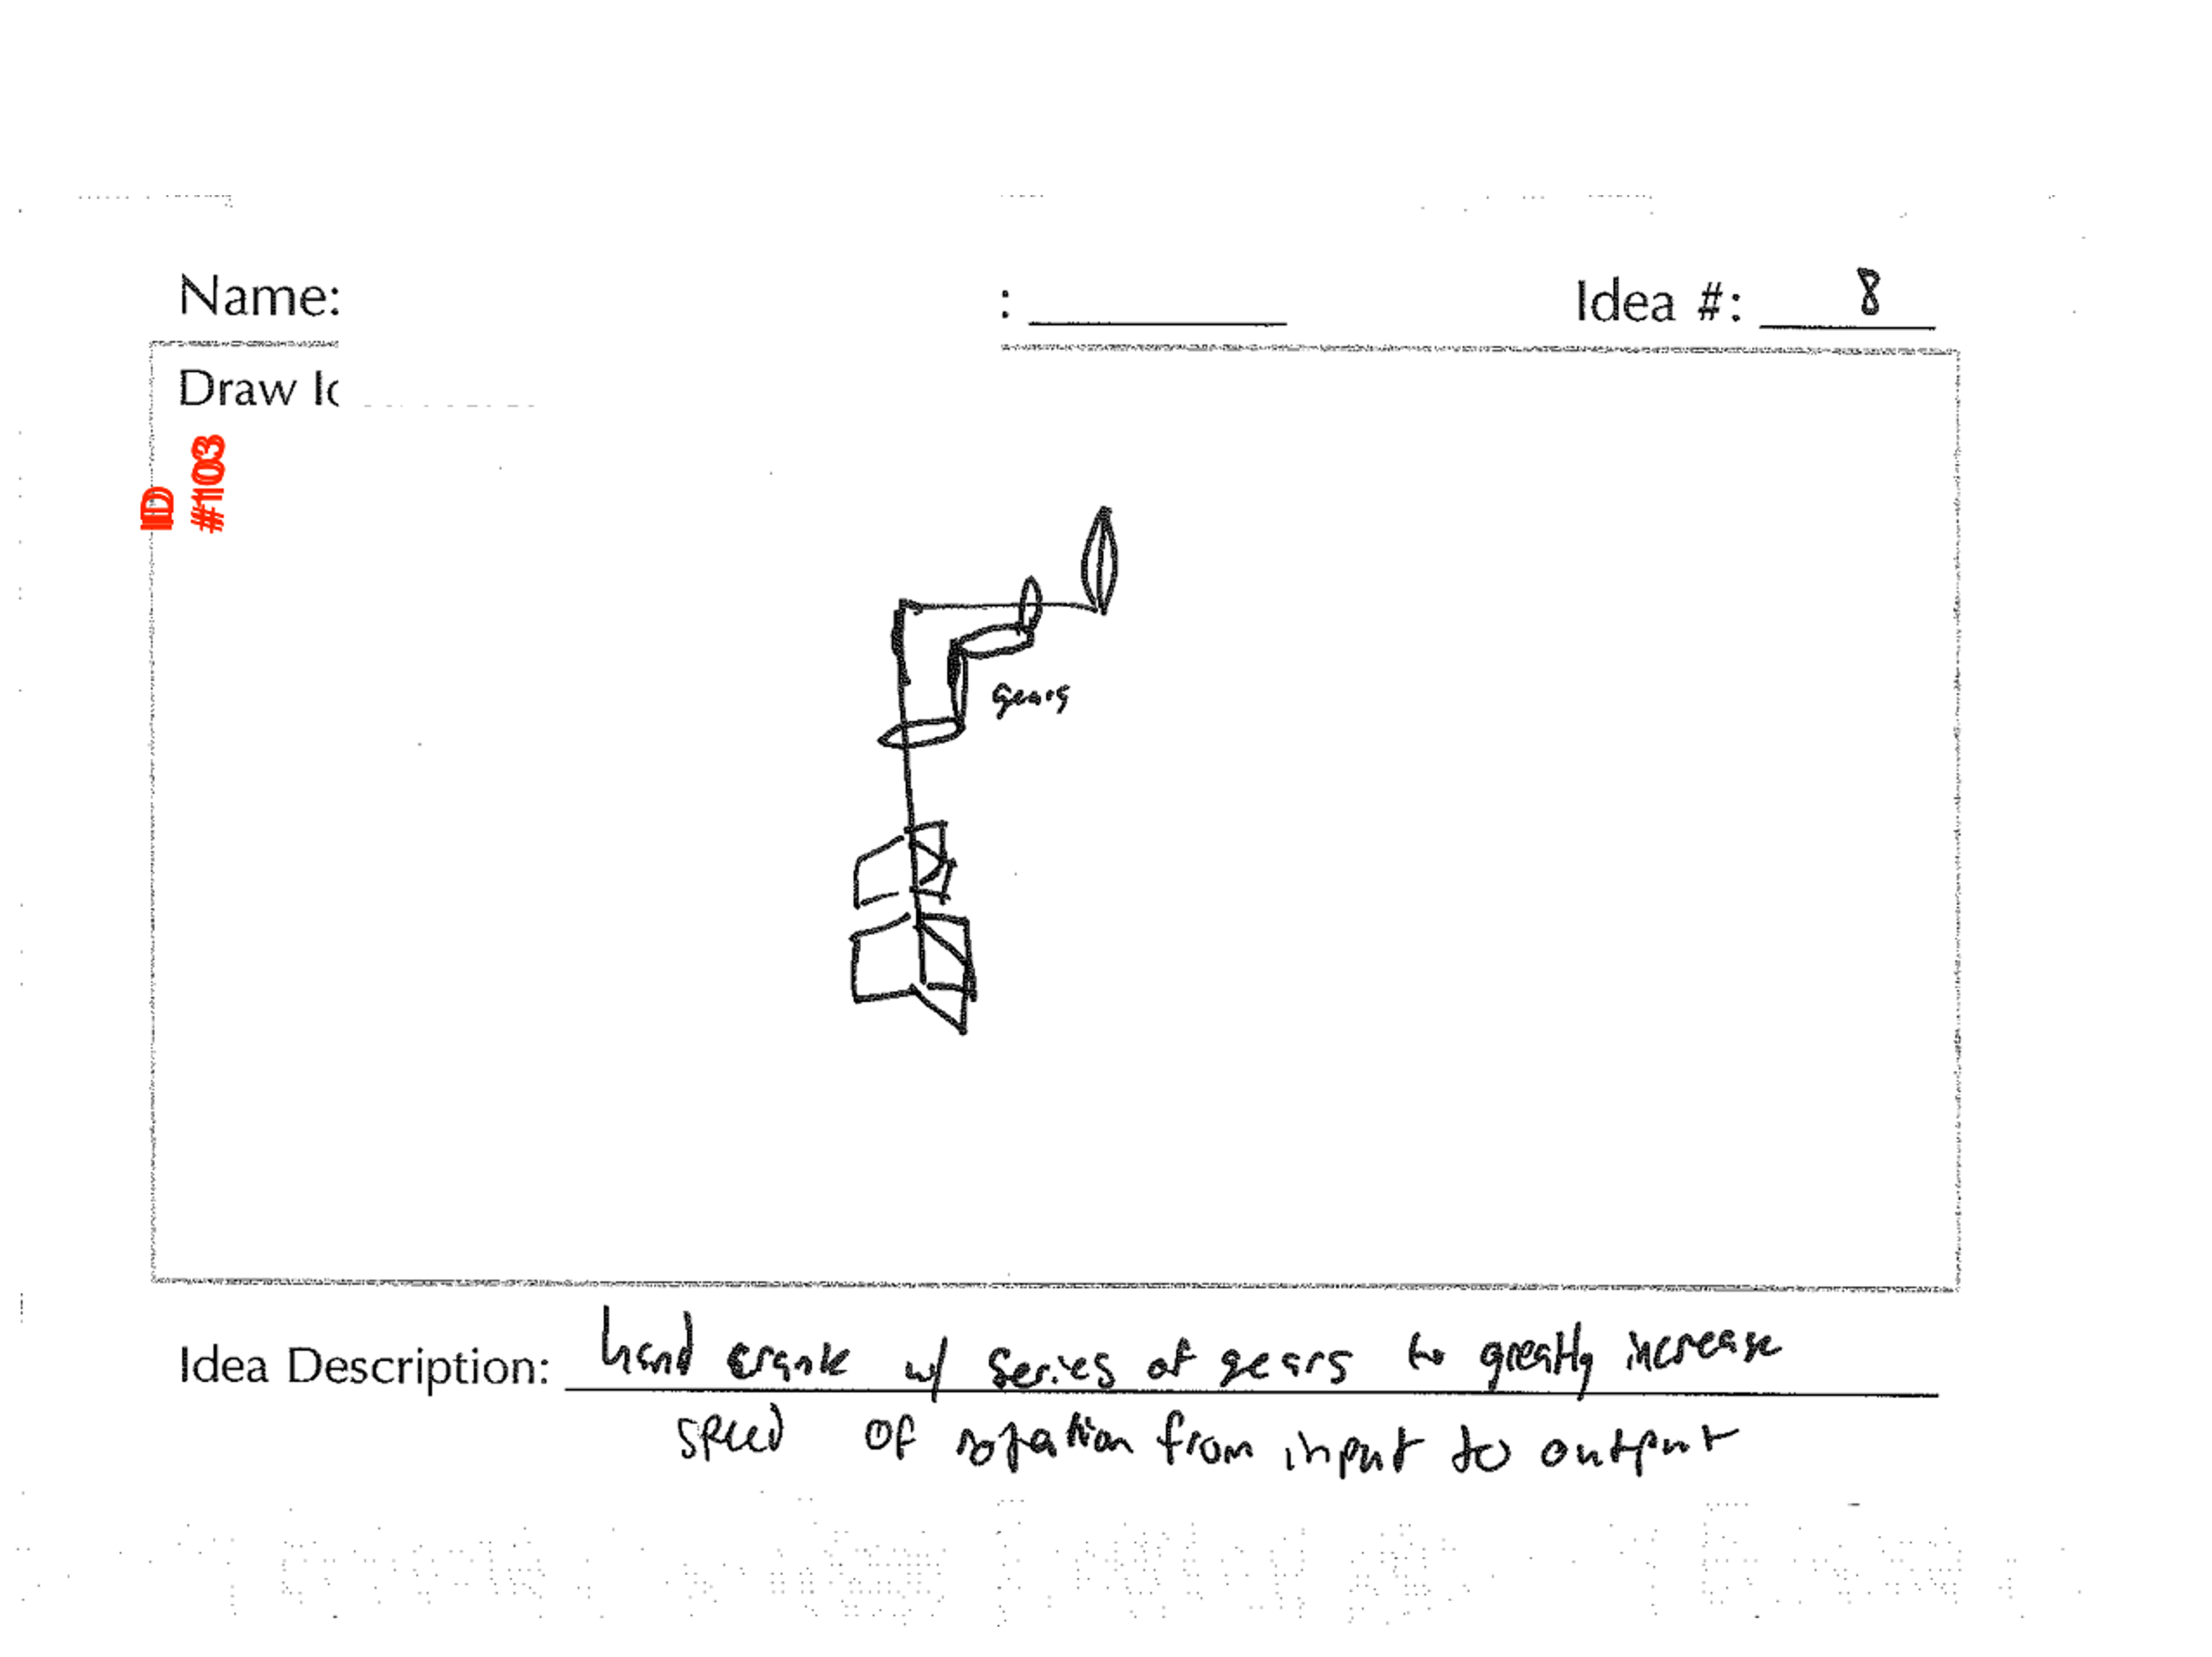 Name: : Idea #: 8
Draw Id
ID
#1103
gears
Idea Description: hand crank w/ series of gears to greatly increase
speed of rotation from input to output